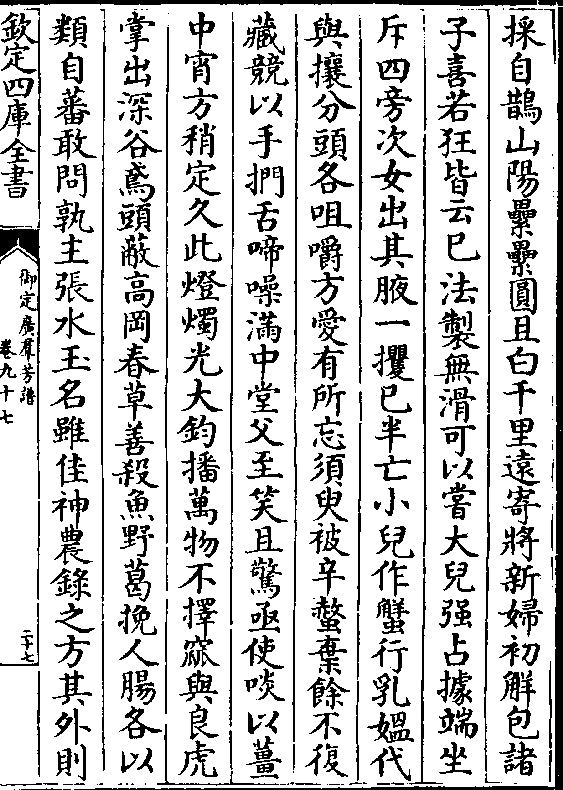 採自鵲山陽纍纍圓且白千里遠寄將新婦初解包諸
子喜若狂皆云已法製無滑可以嘗大兒强占據端坐
斥四旁次女出其腋一攫已半亡小兒作蟹行乳媼代
與攘分頭各咀嚼方愛有所忘須臾被辛螫棄餘不復
藏競以手捫舌啼噪滿中堂父至笑且驚亟使啖以薑
中宵方稍定久此燈燭光大鈞播萬物不擇窳與良虎
掌出深谷鳶頭蔽高岡春草善殺魚野葛挽人腸各以
類自蕃敢問孰主張水玉名雖佳神農錄之方其外則
欽定四庫全書
御定廣羣芳譜
卷九十七
二十七